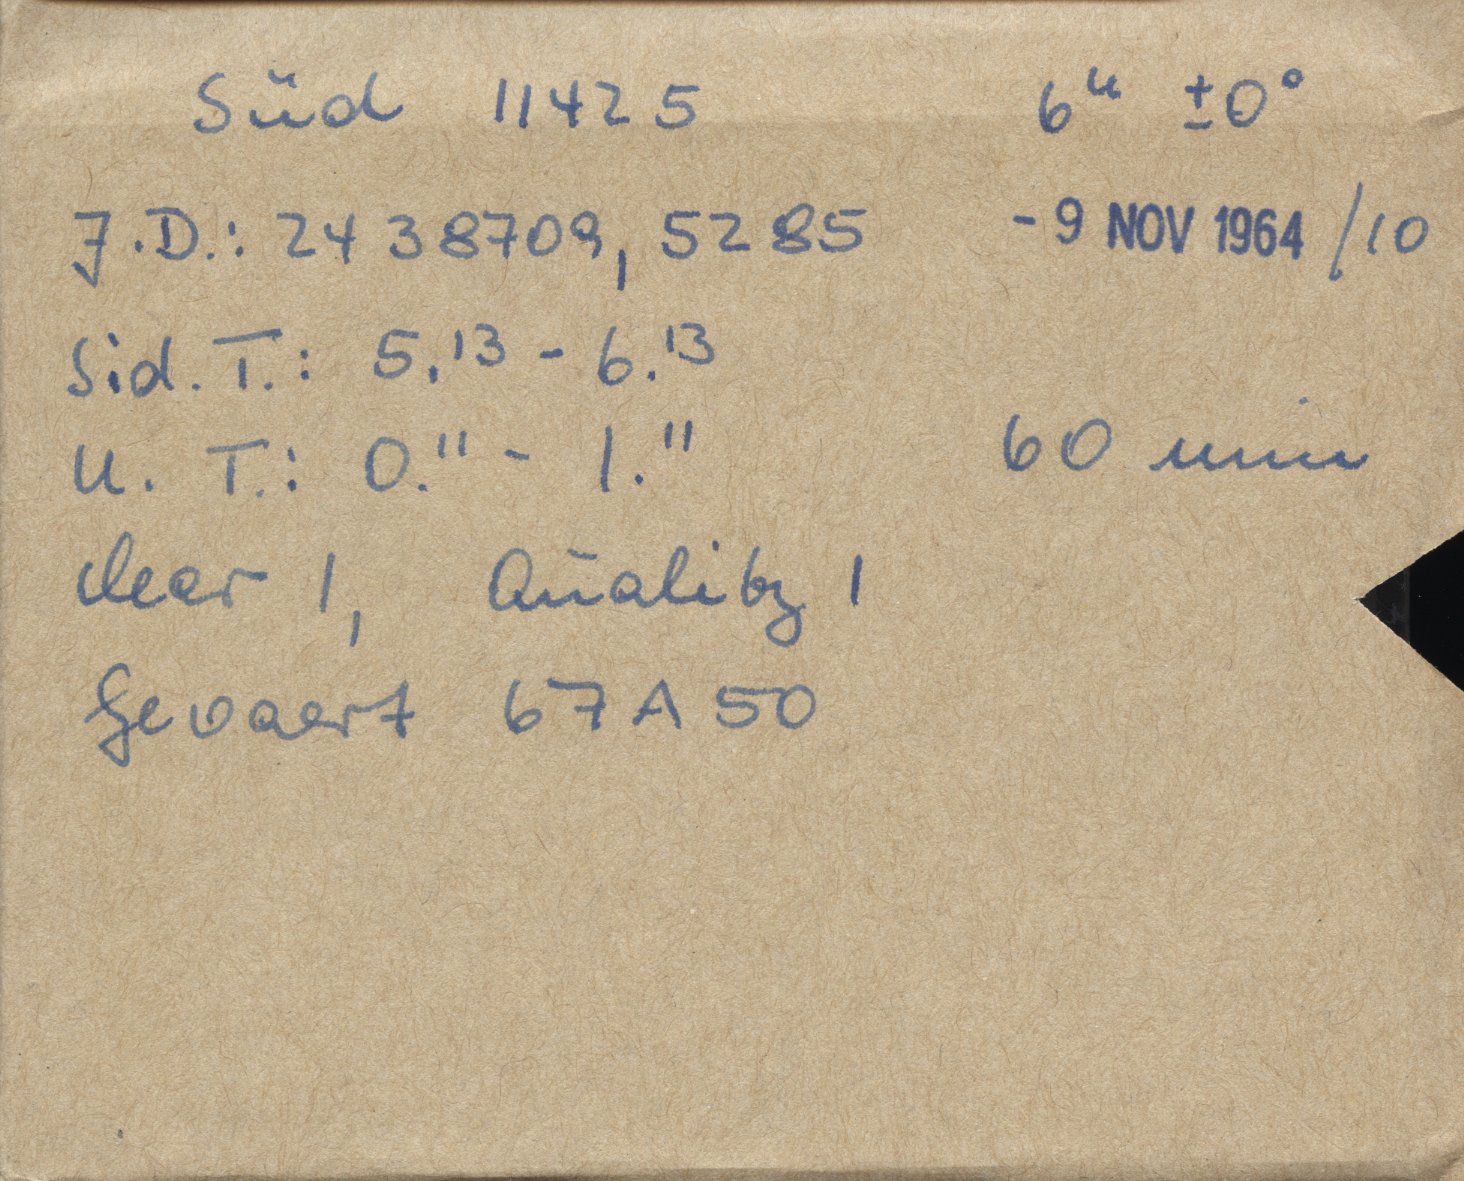 Süd 11425 6ᵘ ±0°
J.D.: 2438709,5285 - 9 NOV 1964 /10
Sid. T.: 5.¹³ - 6.¹³
U. T.: 0.¹¹ - 1.¹¹ 60 min
clear 1, Quality 1
Gevaert 67A50